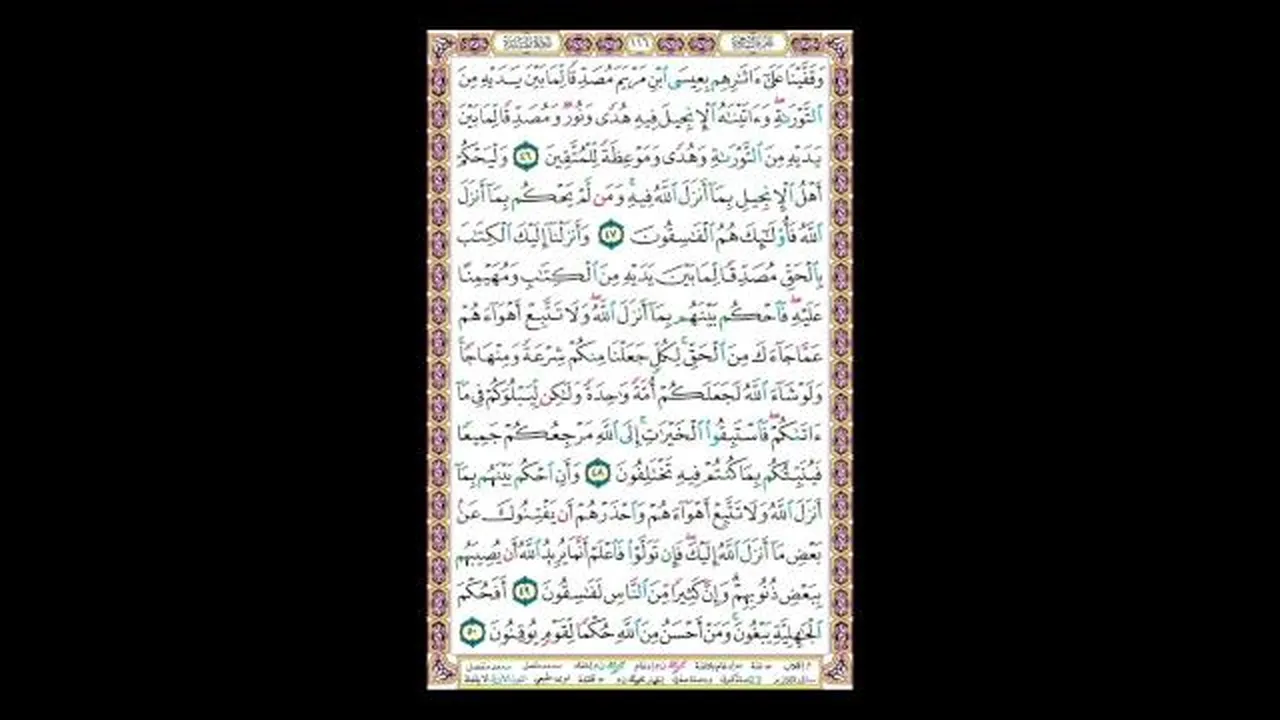 ١١٦
وَقَفَّيْنَا عَلَىٰٓ ءَاثَـٰرِهِم بِعِيسَى ٱبْنِ مَرْيَمَ مُصَدِّقًا لِّمَا بَيْنَ يَدَيْهِ مِنَ
ٱلتَّوْرَىٰةِ ۖ وَءَاتَيْنَـٰهُ ٱلْإِنجِيلَ فِيهِ هُدًى وَنُورٌ وَمُصَدِّقًا لِّمَا بَيْنَ
يَدَيْهِ مِنَ ٱلتَّوْرَىٰةِ وَهُدًى وَمَوْعِظَةً لِّلْمُتَّقِينَ ٤٦ وَلْيَحْكُمْ
أَهْلُ ٱلْإِنجِيلِ بِمَآ أَنزَلَ ٱللَّهُ فِيهِ ۚ وَمَن لَّمْ يَحْكُم بِمَآ أَنزَلَ
ٱللَّهُ فَأُو۟لَـٰٓئِكَ هُمُ ٱلْفَـٰسِقُونَ ٤٧ وَأَنزَلْنَآ إِلَيْكَ ٱلْكِتَـٰبَ
بِٱلْحَقِّ مُصَدِّقًا لِّمَا بَيْنَ يَدَيْهِ مِنَ ٱلْكِتَـٰبِ وَمُهَيْمِنًا
عَلَيْهِ ۖ فَٱحْكُم بَيْنَهُم بِمَآ أَنزَلَ ٱللَّهُ ۖ وَلَا تَتَّبِعْ أَهْوَآءَهُمْ
عَمَّا جَآءَكَ مِنَ ٱلْحَقِّ ۚ لِكُلٍّ جَعَلْنَا مِنكُمْ شِرْعَةً وَمِنْهَاجًا ۚ
وَلَوْ شَآءَ ٱللَّهُ لَجَعَلَكُمْ أُمَّةً وَٰحِدَةً وَلَـٰكِن لِّيَبْلُوَكُمْ فِى مَآ
ءَاتَىٰكُمْ ۖ فَٱسْتَبِقُوا۟ ٱلْخَيْرَٰتِ ۚ إِلَى ٱللَّهِ مَرْجِعُكُمْ جَمِيعًا
فَيُنَبِّئُكُم بِمَا كُنتُمْ فِيهِ تَخْتَلِفُونَ ٤٨ وَأَنِ ٱحْكُم بَيْنَهُم بِمَآ
أَنزَلَ ٱللَّهُ وَلَا تَتَّبِعْ أَهْوَآءَهُمْ وَٱحْذَرْهُمْ أَن يَفْتِنُوكَ عَنۢ
بَعْضِ مَآ أَنزَلَ ٱللَّهُ إِلَيْكَ ۖ فَإِن تَوَلَّوْا۟ فَٱعْلَمْ أَنَّمَا يُرِيدُ ٱللَّهُ أَن يُصِيبَهُم
بِبَعْضِ ذُنُوبِهِمْ ۗ وَإِنَّ كَثِيرًا مِّنَ ٱلنَّاسِ لَفَـٰسِقُونَ ٤٩ أَفَحُكْمَ
ٱلْجَـٰهِلِيَّةِ يَبْغُونَ ۚ وَمَنْ أَحْسَنُ مِنَ ٱللَّهِ حُكْمًا لِّقَوْمٍ يُوقِنُونَ ٥٠